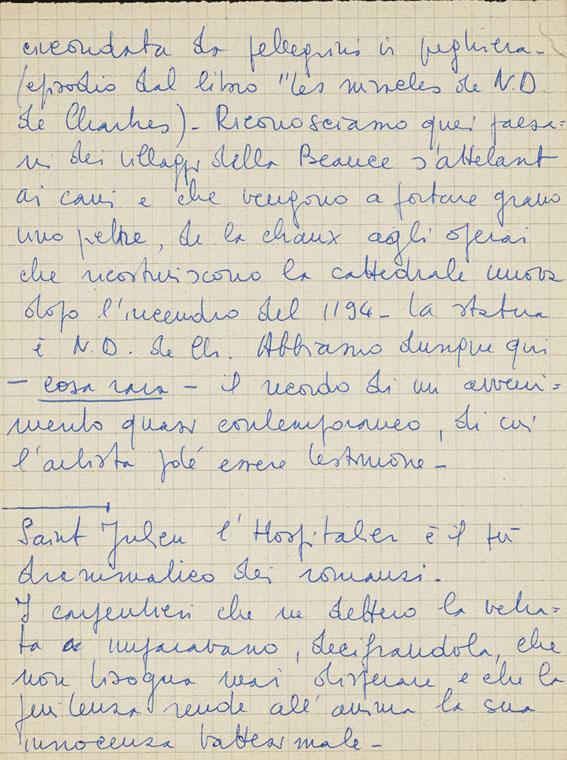 circondata da pellegrini in preghiera -
(episodio dal libro "Les miracles de N.D.
de Chartres) - Riconosciamo quei paesa=
ni dei villaggi della Beauce s'attelant
ai carri e che vengono a portare grano
uno peltre, de la chaux agli operai
che ricostruiscono la cattedrale nuova
dopo l'incendio del 1194 - La statua
è N.D. de Ch. Abbiamo dunque qui
- cosa rara - il ricordo di un avveni=
mento quasi contemporaneo, di cui
l'artista poté essere testimone -
Saint Julien l'Hospitalier è il più
drammatico dei romanzi.
I carpentieri che ne dettero la vetra=
ta imparavano, decifrandola, che
non bisogna mai disperare e che la
penitenza rende all'anima la sua
innocenza battesimale -